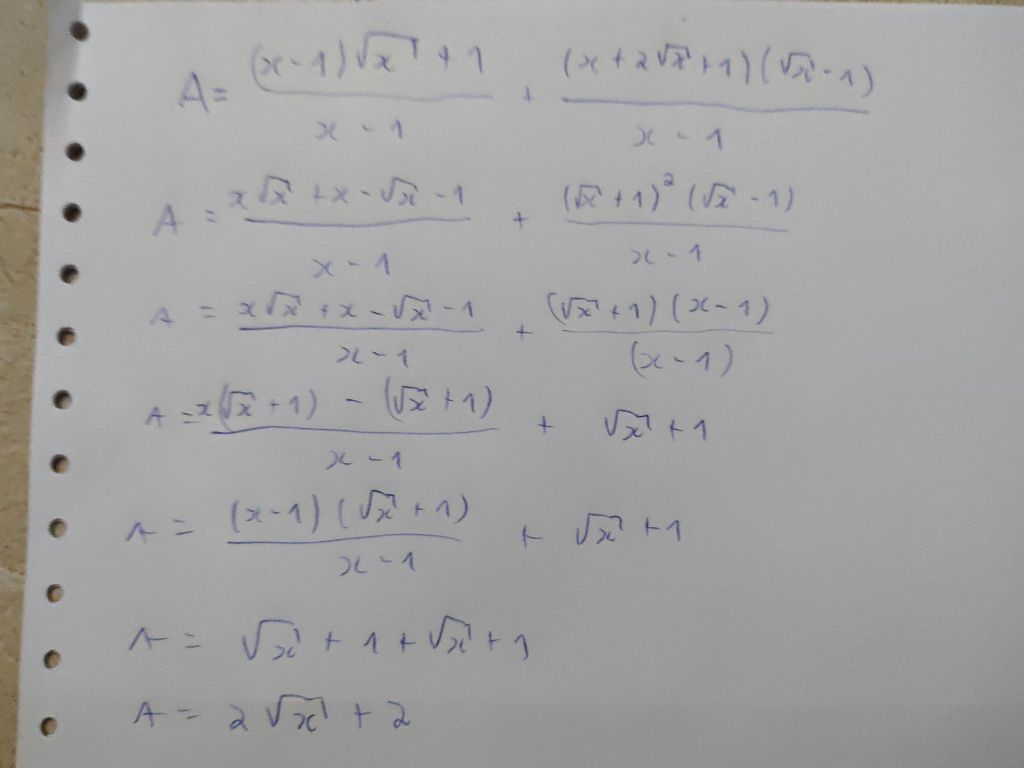 A = \frac{(x-1)\sqrt{x}+1}{x-1} + \frac{(x+2\sqrt{x}+1)(\sqrt{x}-1)}{x-1}
A = \frac{x\sqrt{x}+x-\sqrt{x}-1}{x-1} + \frac{(\sqrt{x}+1)^2(\sqrt{x}-1)}{x-1}
A = \frac{x\sqrt{x}+x-\sqrt{x}-1}{x-1} + \frac{(\sqrt{x}+1)(x-1)}{(x-1)}
A = \frac{x(\sqrt{x}+1)-(\sqrt{x}+1)}{x-1} + \sqrt{x}+1
A = \frac{(x-1)(\sqrt{x}+1)}{x-1} + \sqrt{x}+1
A = \sqrt{x}+1+\sqrt{x}+1
A = 2\sqrt{x}+2